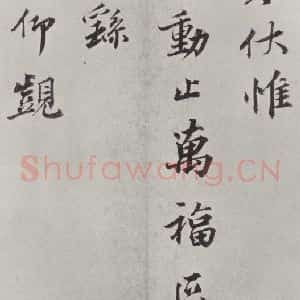 伏惟
動止萬福
繇
仰覬
Shufawang.CN